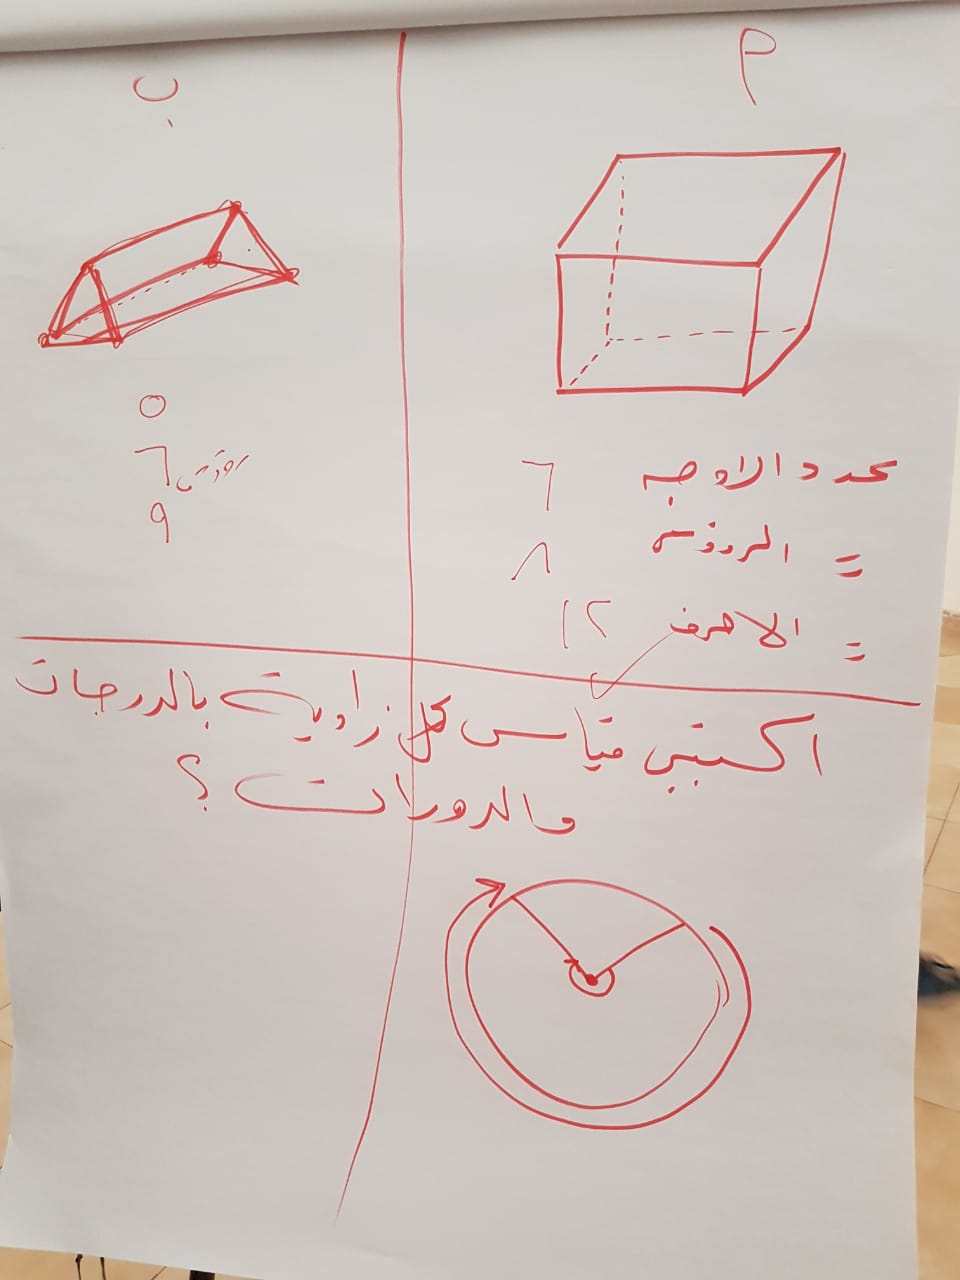 أ
عدد الاوجه ٦
= الرؤوس ٨
= الاحرف ١٢
ب
٥
٦ رؤوس
٩
اكتبي قياس كل زاوية بالدرجات
والدورات ؟